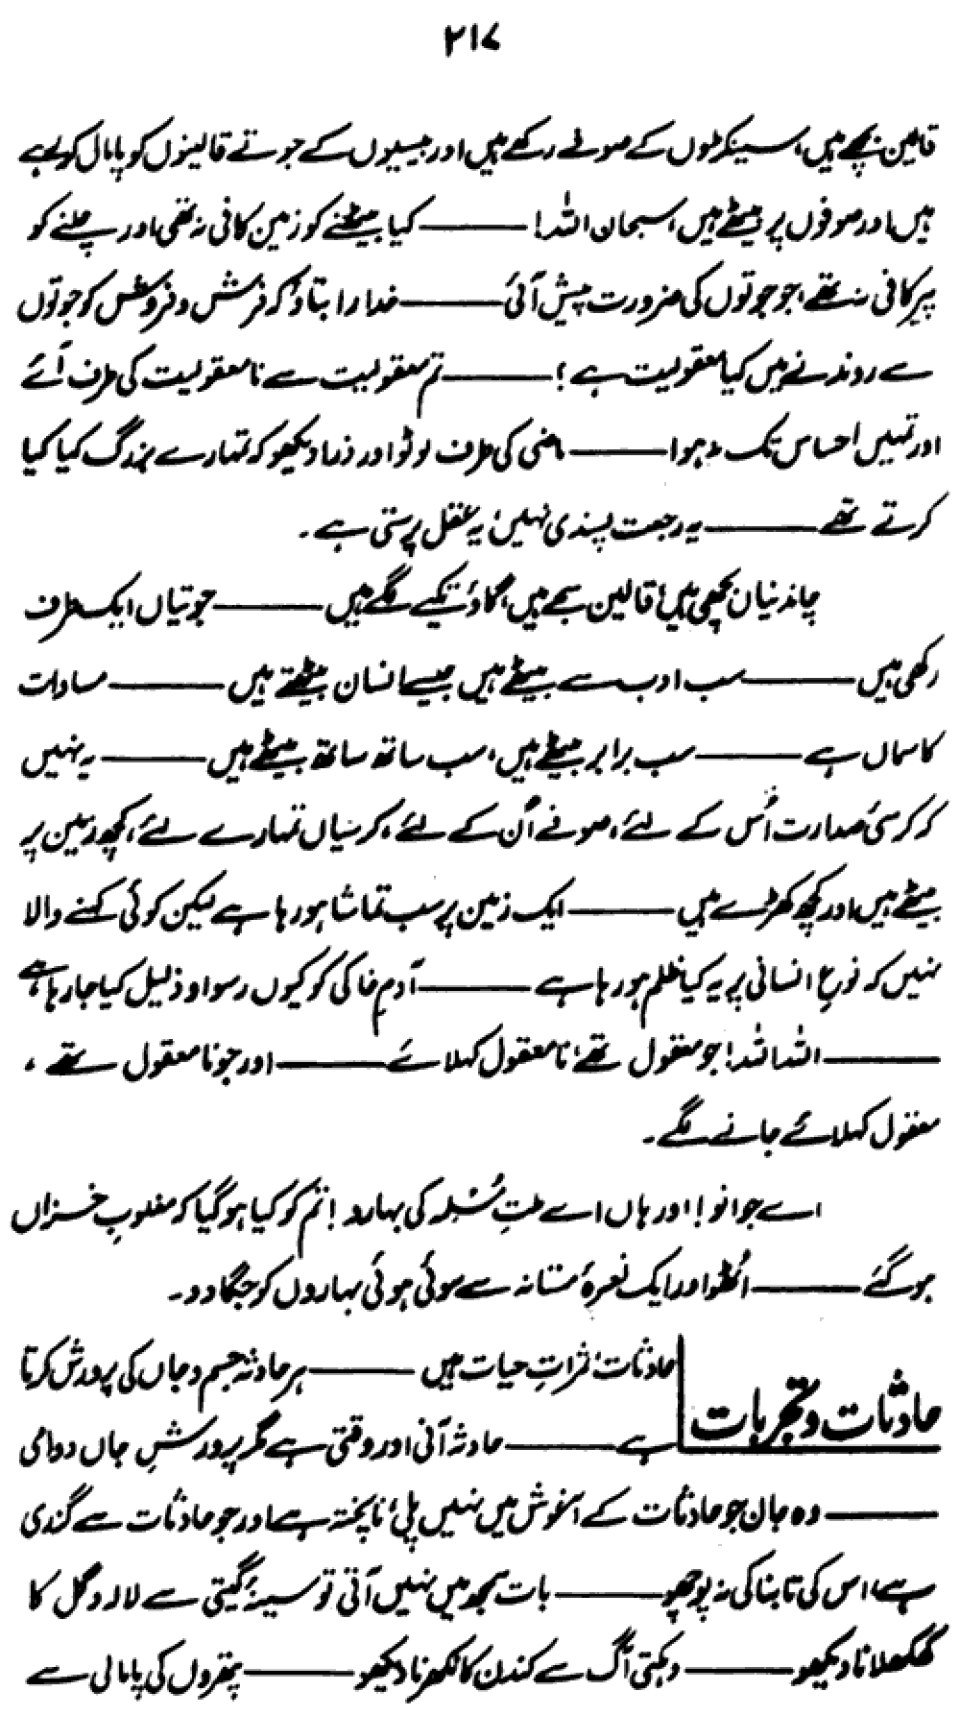 ۲۱۷
قالین بچھے ہیں، سینکڑوں کے صوفے رکھے ہیں اور بیسیوں کے جوتے قالینوں کو پامال کر رہے
ہیں اور صوفوں پر بیٹھے ہیں، سبحان اللہ! ——— کیا بیٹھنے کو زمین کافی نہ تھی اور چلنے کو
پیر کافی نہ تھے، جو جوتوں کی ضرورت پیش آئی ——— خدارا بتاؤ کہ فرش و فروش کو جوتوں
سے روندنے میں کیا معقولیت ہے؟ ——— تم معقولیت سے نامعقولیت کی طرف آئے
اور تمہیں احساس تک نہ ہوا ——— ماضی کی طرف لوٹو اور ذرا دیکھو کہ تمہارے بزرگ کیا کیا
کرتے تھے ——— یہ رجعت پسندی نہیں، یہ عقل پرستی ہے۔
چاندنیاں بچھی ہیں، قالین سجے ہیں، گاؤ تکیے لگے ہیں ——— جوتیاں ایک طرف
رکھی ہیں ——— سب ادب سے بیٹھے ہیں جیسے انسان بیٹھتے ہیں ——— مساوات
کا سماں ہے ——— سب برابر بیٹھے ہیں، سب ساتھ ساتھ بیٹھے ہیں ——— یہ نہیں
کہ کرسئ صدارت اُس کے لئے، صوفے اُن کے لئے، کرسیاں تمہارے لئے، کچھ زمین پر
بیٹھے ہیں اور کچھ کھڑے ہیں ——— ایک زمین پر سب تماشا ہو رہا ہے لیکن کوئی کہنے والا
نہیں کہ نوعِ انسانی پر یہ کیا ظلم ہو رہا ہے ——— آدمِ خاکی کو کیوں رسوا و ذلیل کیا جا رہا ہے
——— اللہ اللہ! جو معقول تھے، نامعقول کہلائے ——— اور جو نامعقول تھے،
معقول کہلائے جانے لگے۔
اے جوانو! اور ہاں اے ملتِ مُسلمہ کی بہارو! تم کو کیا ہو گیا کہ مغلوبِ خزاں
ہو گئے ——— اُٹھو اور ایک نعرۂ مستانہ سے سوئی ہوئی بہاروں کو جگا دو۔
حادثات و تجربات
حادثات، ثمراتِ حیات ہیں ——— ہر حادثہ جسم و جاں کی پرورش کرتا
ہے ——— حادثہ آنی اور وقتی ہے مگر پرورشِ جاں دوامی
——— وہ جان جو حادثات کے آغوش میں نہیں پلی، ناپختہ ہے اور جو حادثات سے گذری
ہے، اس کی تابناکی نہ پوچھو ——— بات سمجھ میں نہیں آتی تو سینۂ گیتی سے لالہ و گل کا
کھکھلانا دیکھو ——— دہکتی آگ سے کندن کا نکھرنا دیکھو ——— پتھروں کی پامالی سے